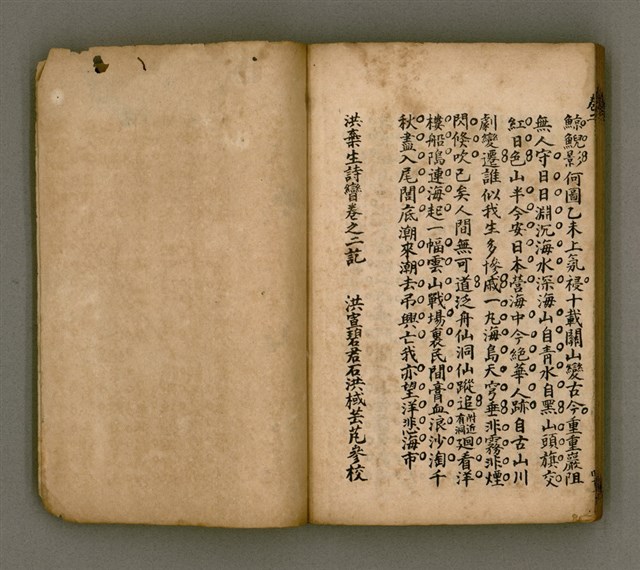 鯨鯢影何圖乙未上氛祲十載關山變古今重重嚴阻
無人守日日淵沉海水深海山自青水自黑山頭旗交
紅日色山半今安日本營海中今絕華人跡自古山川
劇變遷誰似我生多慘戚一九海島天穹垂非霧非煙
閃倏吹已矣人間無可道泛舟仙洞仙蹤追附近有洞廻看洋
樓船隝連海起一幅雲山戰場裏民間膏血浪沙淘千
秋盡入尾閭底潮來潮去弔興亡我亦望洋悲海市
洪棄生詩彎卷之二記　洪宣碧君石洪棫芸芘參校
卷二